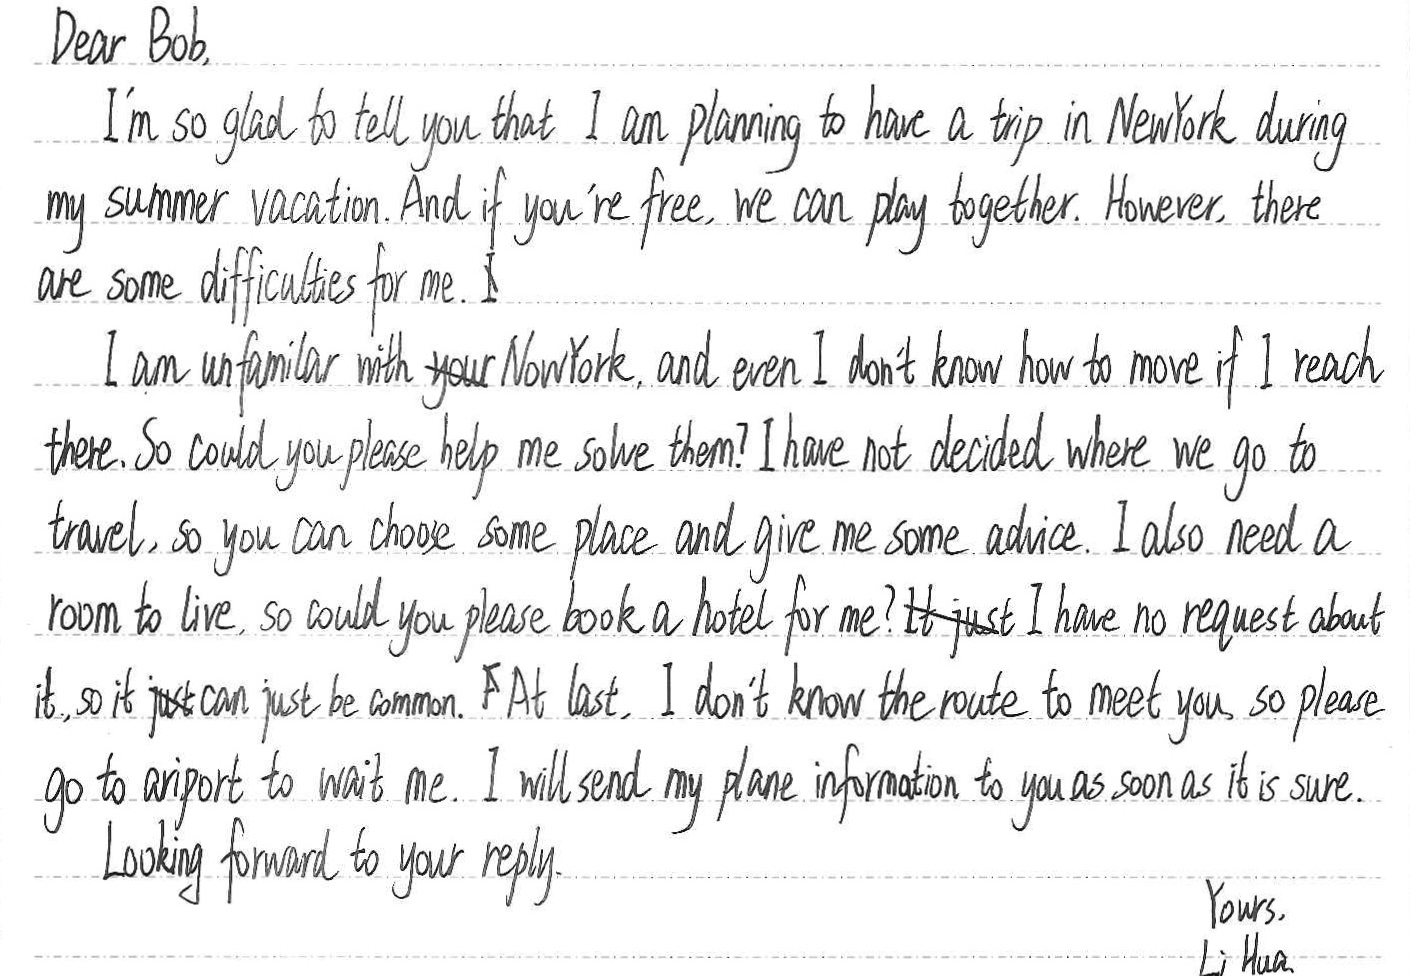 Dear Bob,
I'm so glad to tell you that I am planning to have a trip in NewYork during
my summer vacation. And if you're free, we can play together. However, there
are some difficulties for me. I
I am unfamilar with your NowYork, and even I don't know how to move if I reach
there. So could you please help me solve them? I have not decided where we go to
travel, so you can choose some place and give me some advice. I also need a
room to live, so could you please book a hotel for me? It just I have no request about
it, so it just can just be common. F At last, I don't know the route to meet you, so please
go to ariport to wait me. I will send my plane information to you as soon as it is sure.
Looking forward to your reply.
Yours,
Li Hua.